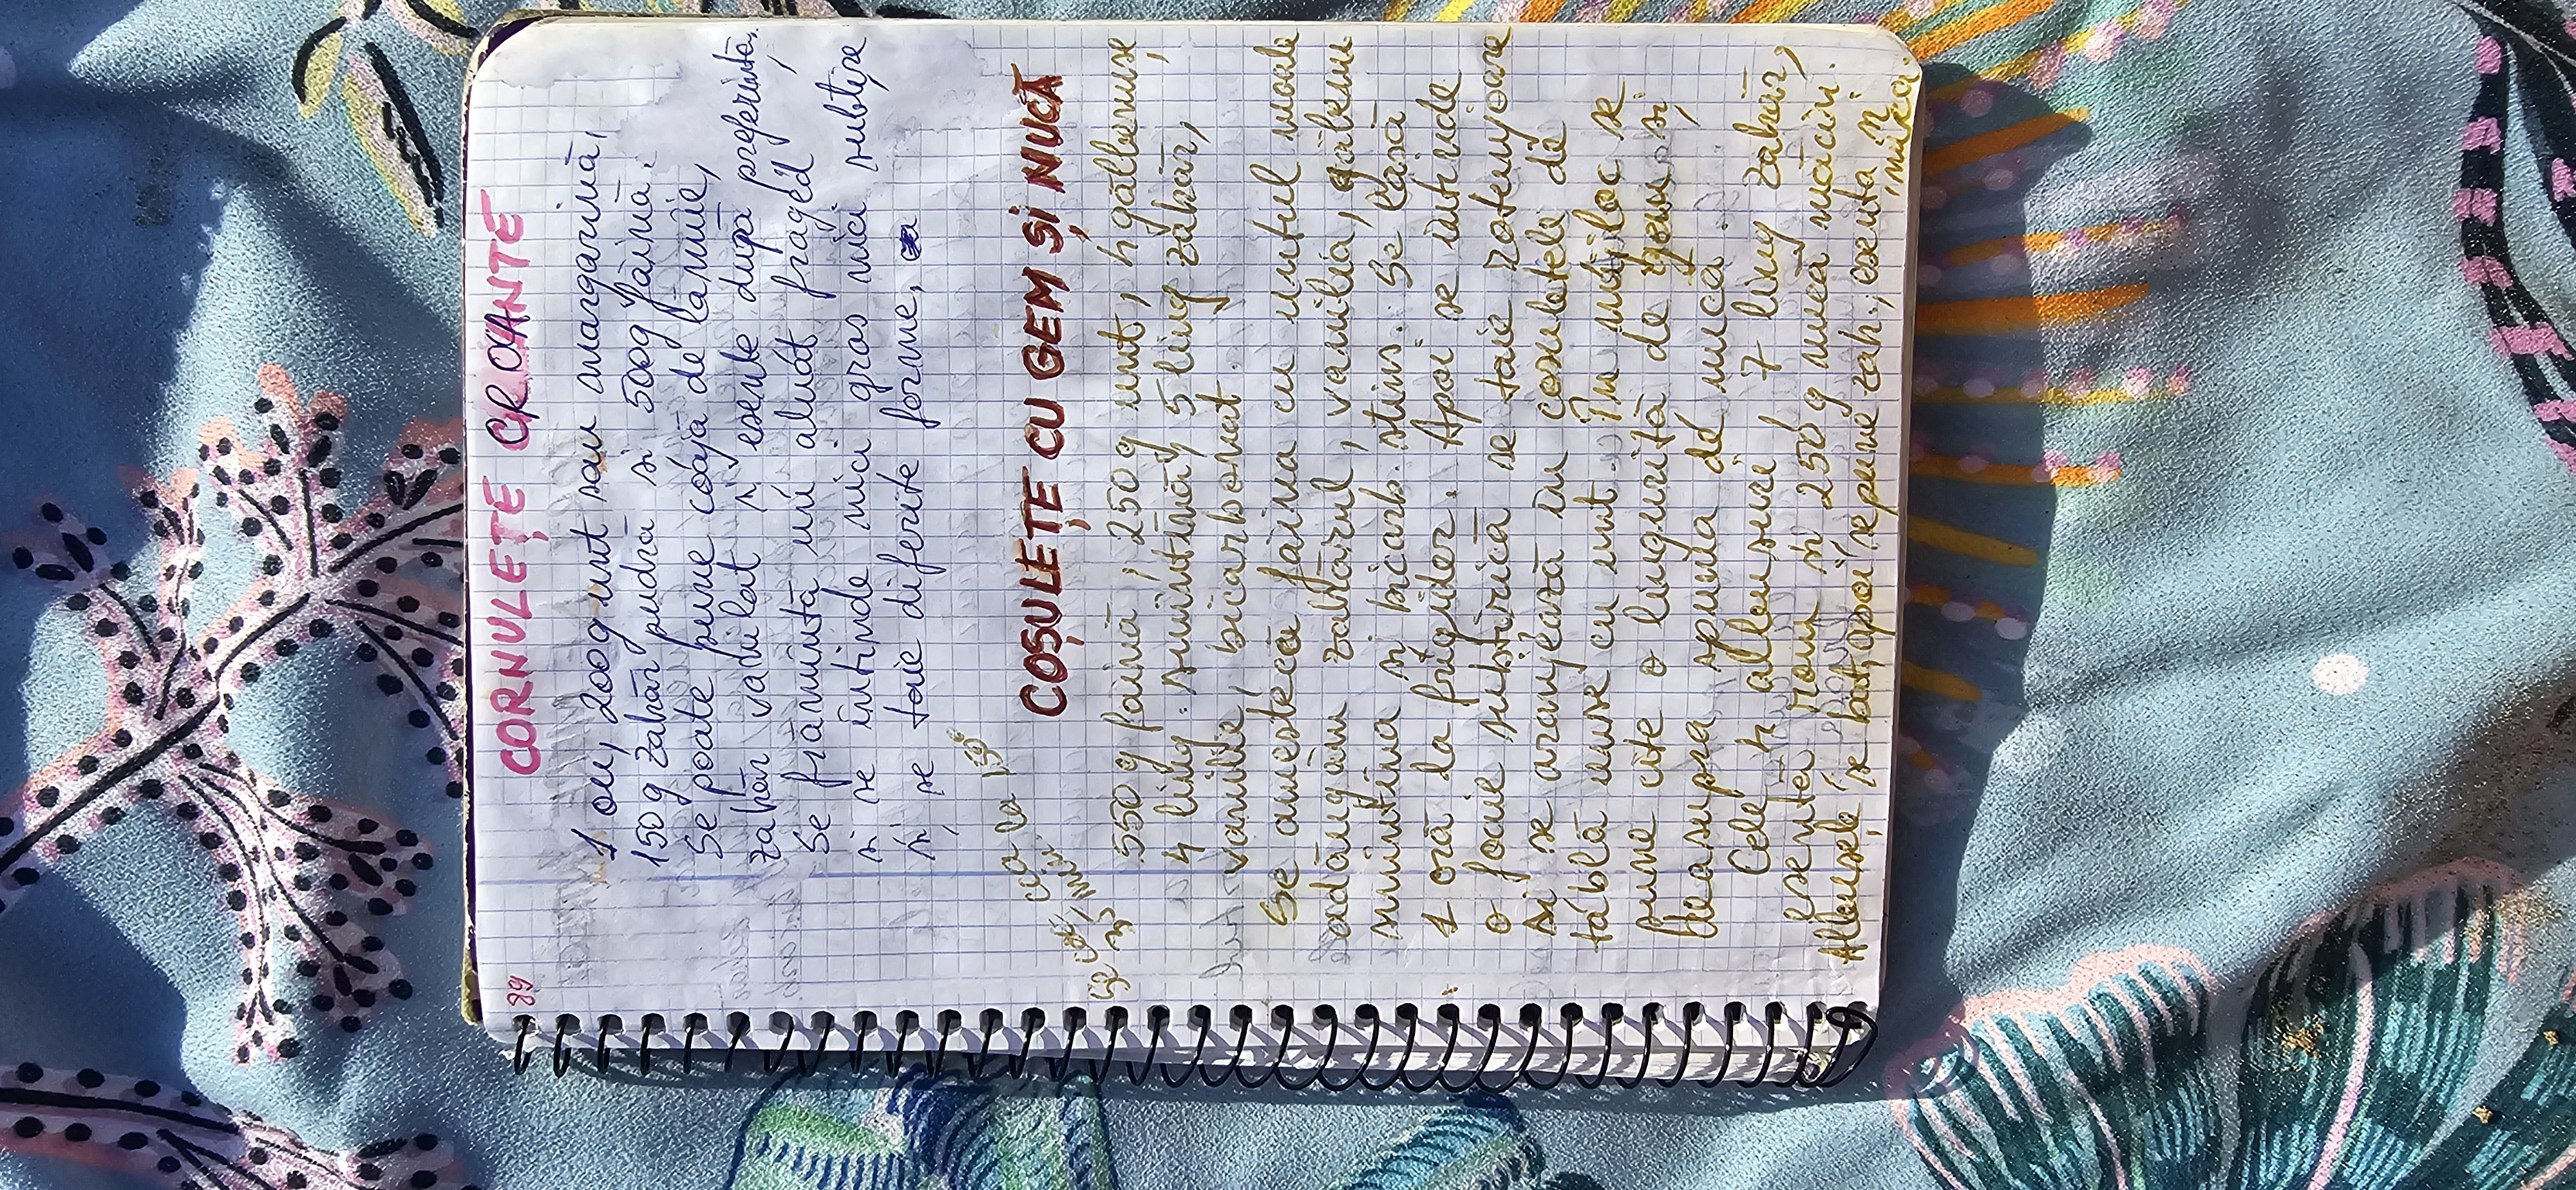 89
CORNULEȚE CROCANTE
1 ou, 200g unt sau margarină,
150g zahăr pudră și 500g făină.
Se poate pune coajă de lămîie,
zahăr vanilat și esențe după preferință.
Se frămîntă un aluat fraged
și se întinde nici gros nici subțire
și se taie diferite forme.
Se coc cca
35 min. la 150°
COȘULEȚE CU GEM ȘI NUCĂ
550g faină, 250g unt, 4 gălbenușe
4 ling. smîntînă, 5 ling zahăr,
vanilie, bicarbonat.
Se amestecă făina cu untul moale
adăugăm zahărul, vanilia, gălbenu
smîntîna și bicarb. stins. Se lasă
1 oră la frigider. Apoi se întinde
o foaie subțirică se taie rotunjoare
și se aranjează în coșuletele de
tablă unse cu unt. În mijloc se
pune cîte o linguriță de gem și
deasupra spuma de nucă.
Cele 4 albușuri, 7 ling zahăr,
esență rom și 250g nucă măcin.
Albușele se bat, apoi se pune zah., esența și
nuca.